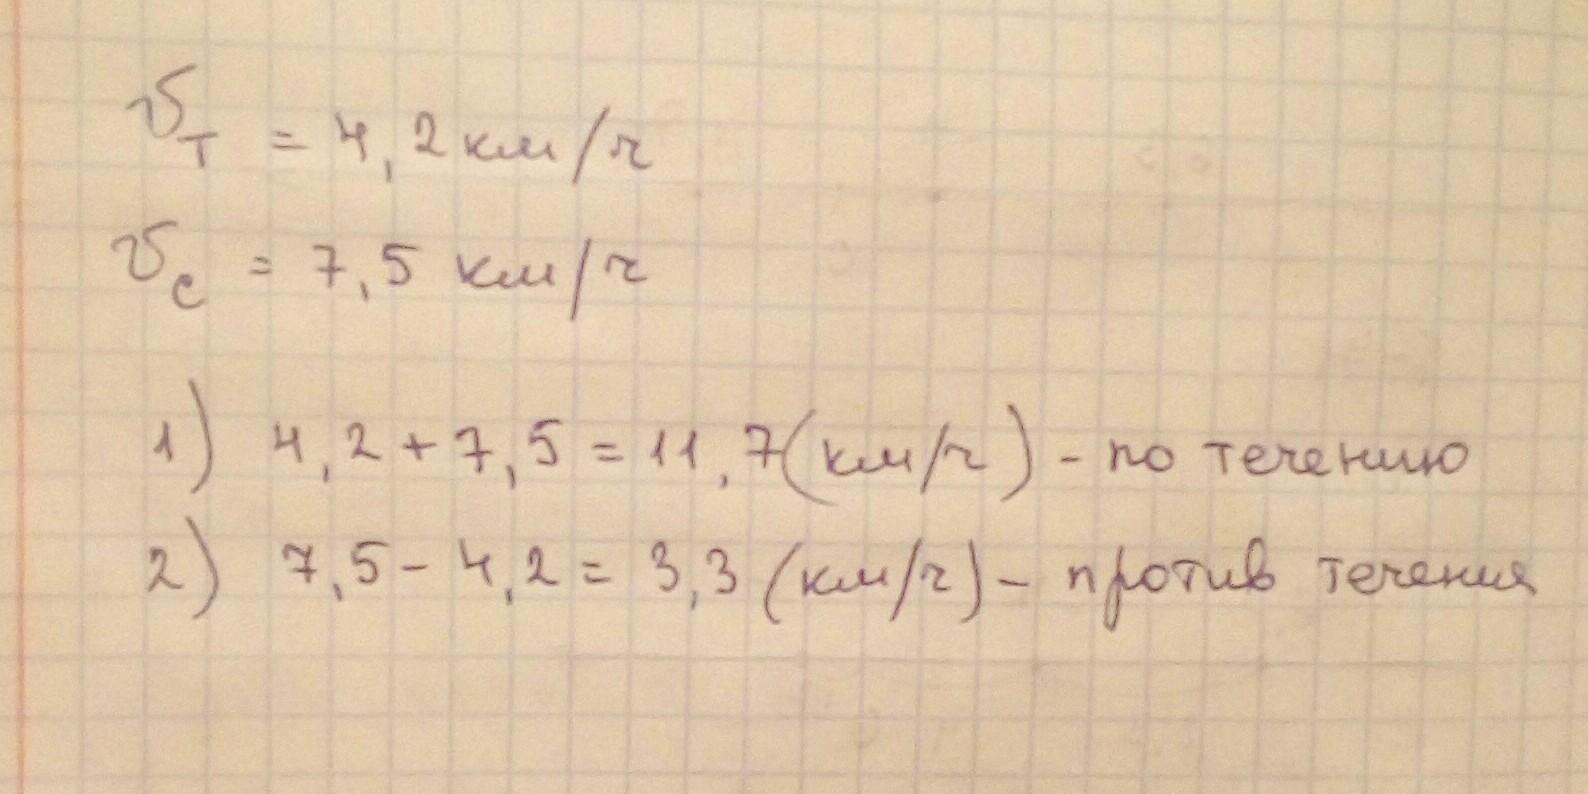 v_т = 4,2 км/ч
v_с = 7,5 км/ч
1) 4,2 + 7,5 = 11,7 (км/ч) - по течению
2) 7,5 - 4,2 = 3,3 (км/ч) - против течения